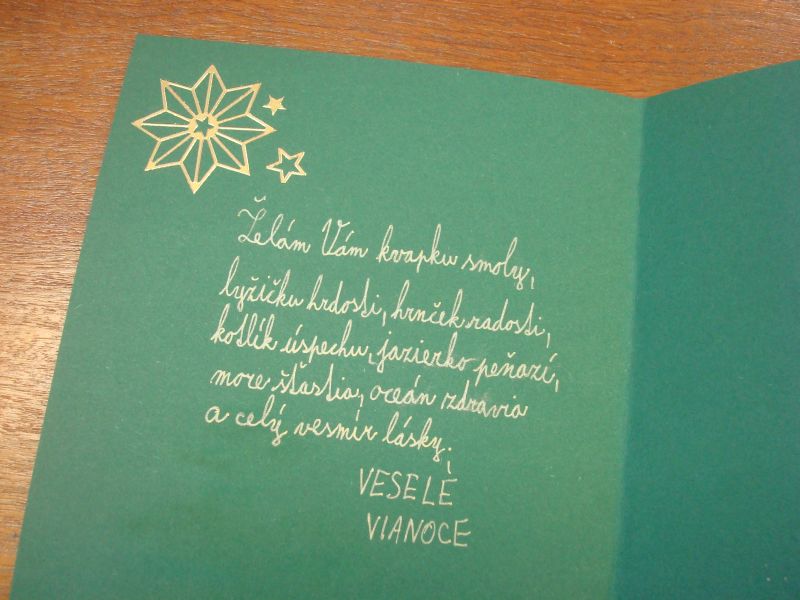 Želám Vám kvapku smoly,
lyžičku hrdosti, hrnček radosti,
kotlík úspechu, jazierko peňazí,
more šťastia, oceán zdravia
a celý vesmír lásky;
VESELÉ
VIANOCE